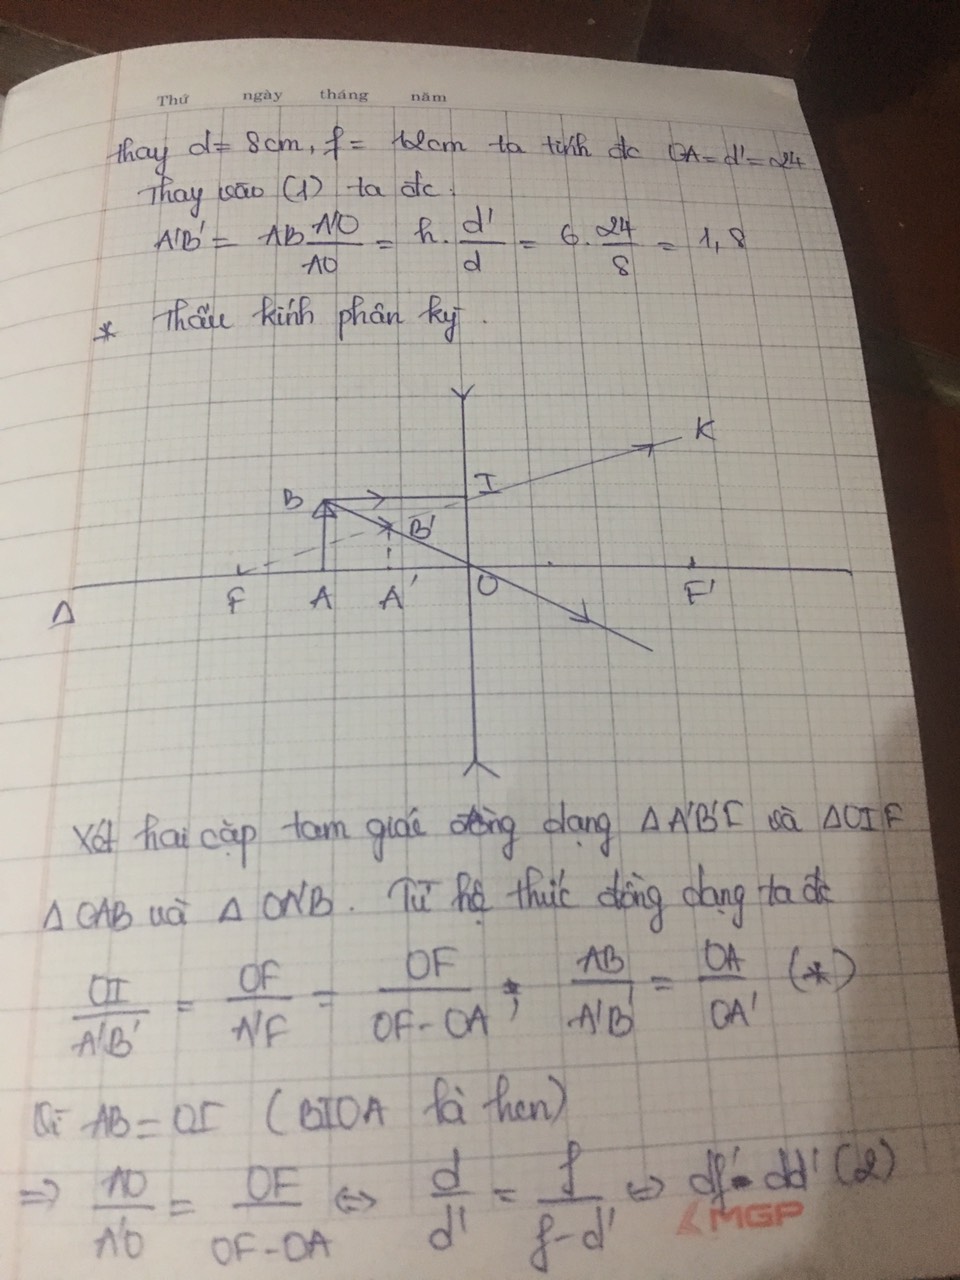 Thứ ngày tháng năm
thay d= 8cm, f = 12cm ta tính đc OA = d' = 24
Thay vào (1) ta đc.
A'B' = AB A'O/AO = h. d'/d = 6. 24/8 = 1,8
* Thấu kính phân kỳ.
K
B I
B'
Δ F A A' O F'
Xét hai cặp tam giác đồng dạng Δ A'B'F và Δ OIF
Δ OAB và Δ OA'B'. Từ hệ thức đồng dạng ta đc
OI/A'B' = OF/A'F = OF/OF-OA ; AB/A'B' = OA/OA' (*)
Vì AB = OI (BIOA là hcn)
=> AO/A'O = OF/OF-OA <=> d/d' = f/f-d' <=> df - dd' (2)
MGP